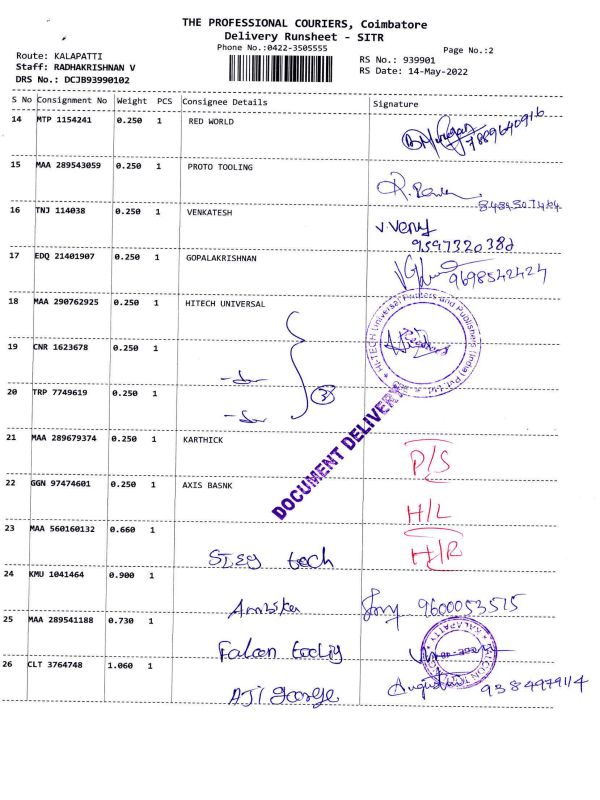 THE PROFESSIONAL COURIERS, Coimbatore
Delivery Runsheet - SITR
Phone No.:0422-3505555
Page No.:2
Route: KALAPATTI
Staff: RADHAKRISHNAN V
DRS No.: DCJB93990102
RS No.: 939901
RS Date: 14-May-2022
S No Consignment No Weight PCS Consignee Details Signature
14 MTP 1154241 0.250 1 RED WORLD 7889640916
15 MAA 289543059 0.250 1 PROTO TOOLING
16 TNJ 114038 0.250 1 VENKATESH V.Veny
9597320382
17 EDQ 21401907 0.250 1 GOPALAKRISHNAN 9698542424
18 MAA 290762925 0.250 1 HITECH UNIVERSAL
HI-TECH Universal Printers and Publishers (India) Pvt. Ltd.
19 CNR 1623678 0.250 1
20 TRP 7749619 0.250 1
3
DOCUMENT DELIVER
21 MAA 289679374 0.250 1 KARTHICK P/S
22 GGN 97474601 0.250 1 AXIS BASNK H/L
23 MAA 560160132 0.660 1 H/R
tech
24 KMU 1041464 0.900 1 9600053515
25 MAA 289541188 0.730 1 Falcon
26 CLT 3764748 1.060 1 AJI George 9384979114